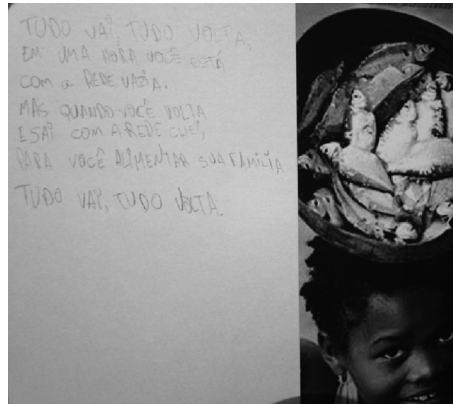 TUDO VAI, TUDO VOLTA,
EM UMA HORA VOCÊ ESTÁ
COM a REDE VAZIA.
MAS QUANDO VOCÊ VOLTA
E SAI COM A REDE CHEI,
PARA VOCÊ ALIMENTAR SUA FAMÍLIA
TUDO VAI, TUDO VOLTA.